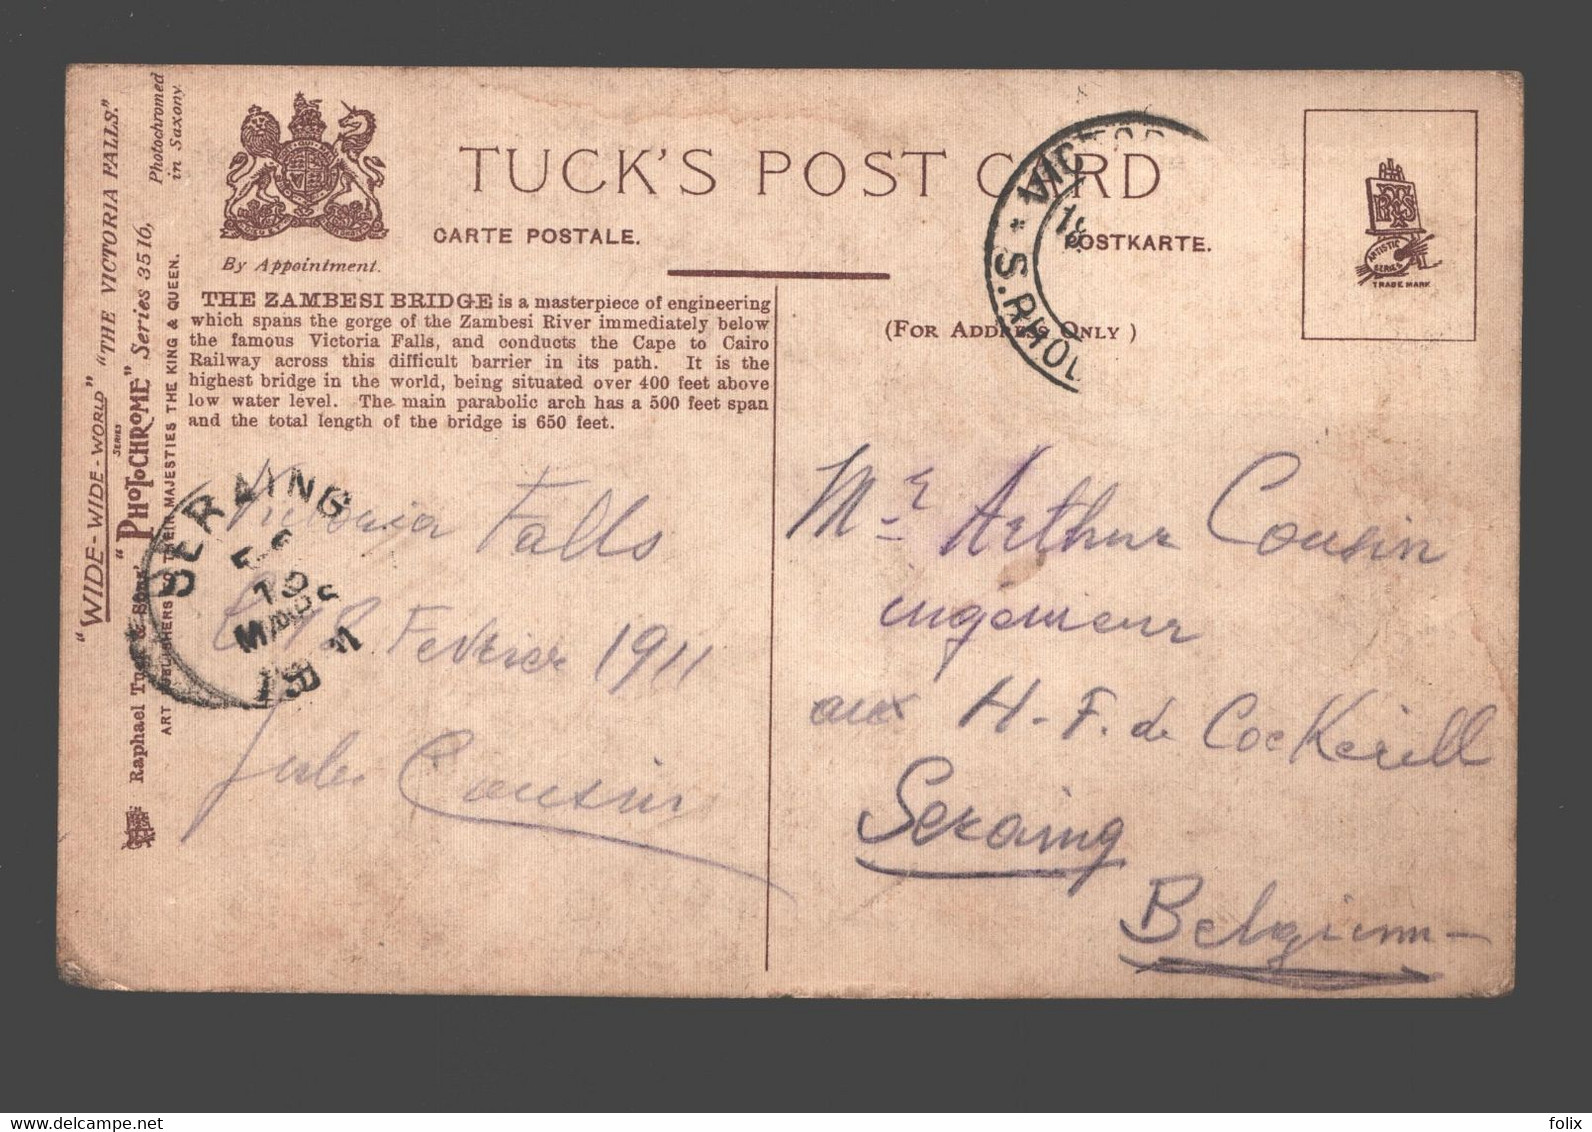 "WIDE-WIDE-WORLD" "THE VICTORIA FALLS."
SERIES
Raphael Tuck & Sons' "PHOTOCHROME" Series 3516,
ART PUBLISHERS TO THEIR MAJESTIES THE KING & QUEEN.
Photochromed
in Saxony.
By Appointment.
TUCK'S POST CARD
CARTE POSTALE.
POSTKARTE.
ARTISTIC
SERIES
TRADE MARK
(FOR ADDRESS ONLY)
THE ZAMBESI BRIDGE is a masterpiece of engineering
which spans the gorge of the Zambesi River immediately below
the famous Victoria Falls, and conducts the Cape to Cairo
Railway across this difficult barrier in its path. It is the
highest bridge in the world, being situated over 400 feet above
low water level. The main parabolic arch has a 500 feet span
and the total length of the bridge is 650 feet.
VICTOR
S.RHOD
SERAING
19
MARS
Victoria Falls
Fevrier 1911
Jules Cousin
Mr Arthur Cousin
ingenieur
aux H-F. de Cockerill
Seraing
Belgium
folix